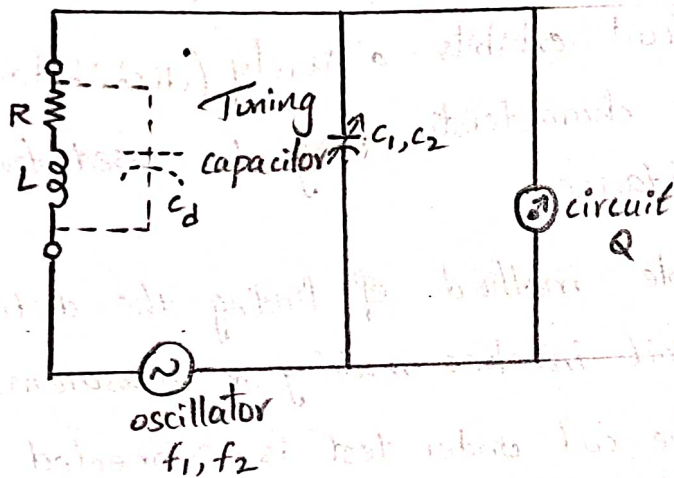 R
L
C_d
Tuning
capacitor
C_1, C_2
circuit
Q
oscillator
f_1, f_2